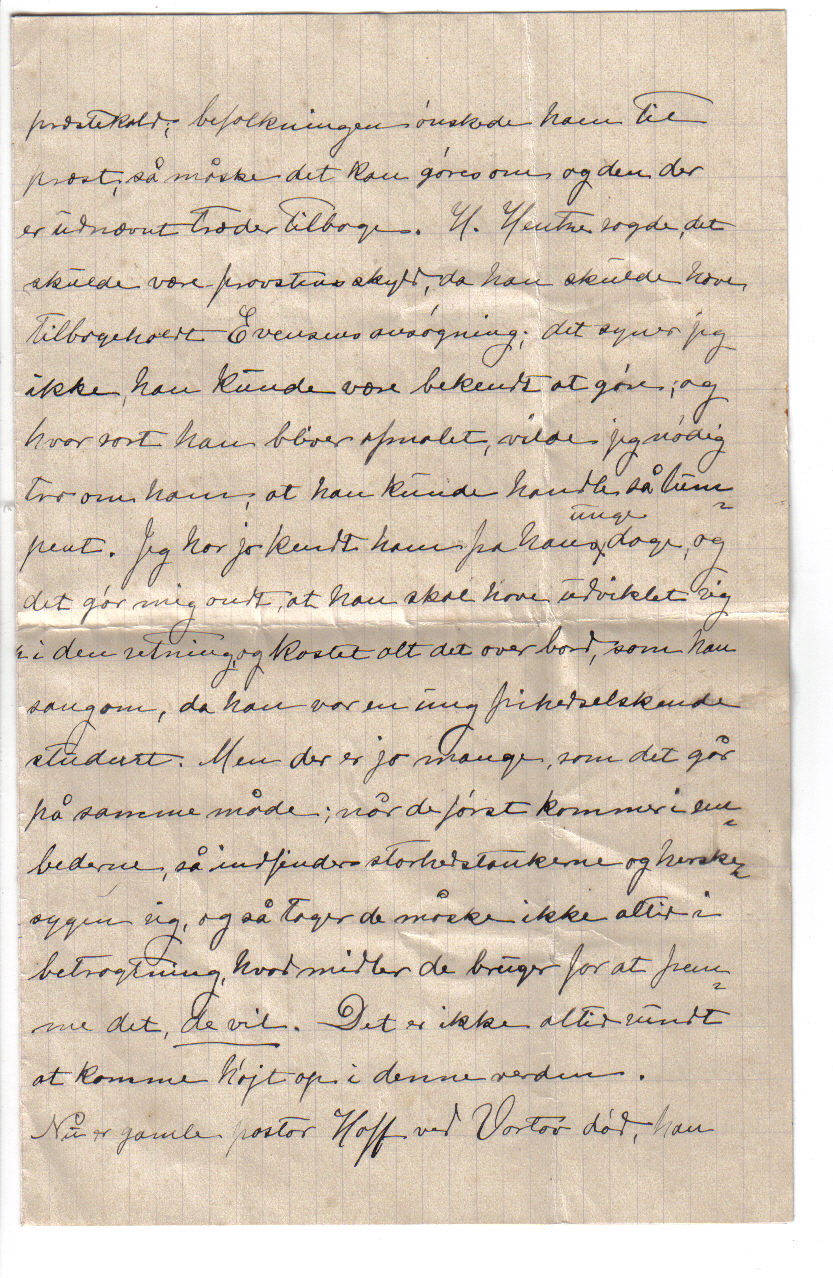 præstekald; befolkningen ønskede ham til
præst, så måske det kan gøres om, og den der
er udnævnt træder tilbage. H. sagde, det
skulde være provstens skyld, da han skulde have
tilbageholdt Evensens ansøgning; det synes jeg
ikke, han kunde være bekendt at gøre; og
hvor sort han bliver afmalet, vilde jeg nødig
tro om ham, at han kunde handle så lum=
pent. Jeg har jo kendt ham fra hans unge dage, og
det gør mig ondt, at han skal have udviklet sig
i den retning, og kastet alt det over bord, som han
sang om, da han var en ung frihedselskende
student. Men der er jo mange, som det går
på samme måde; når de først kommer i em=
bederne, så indfinder storhedstankerne og herske=
sygen sig, og så tager de måske ikke altid i
betragtning, hvad midler de bruger for at frem=
me det, de vil. Det er ikke altid sundt
at komme højt op i denne verden.
Nu er gamle pastor Hoff ved Vartov død, han